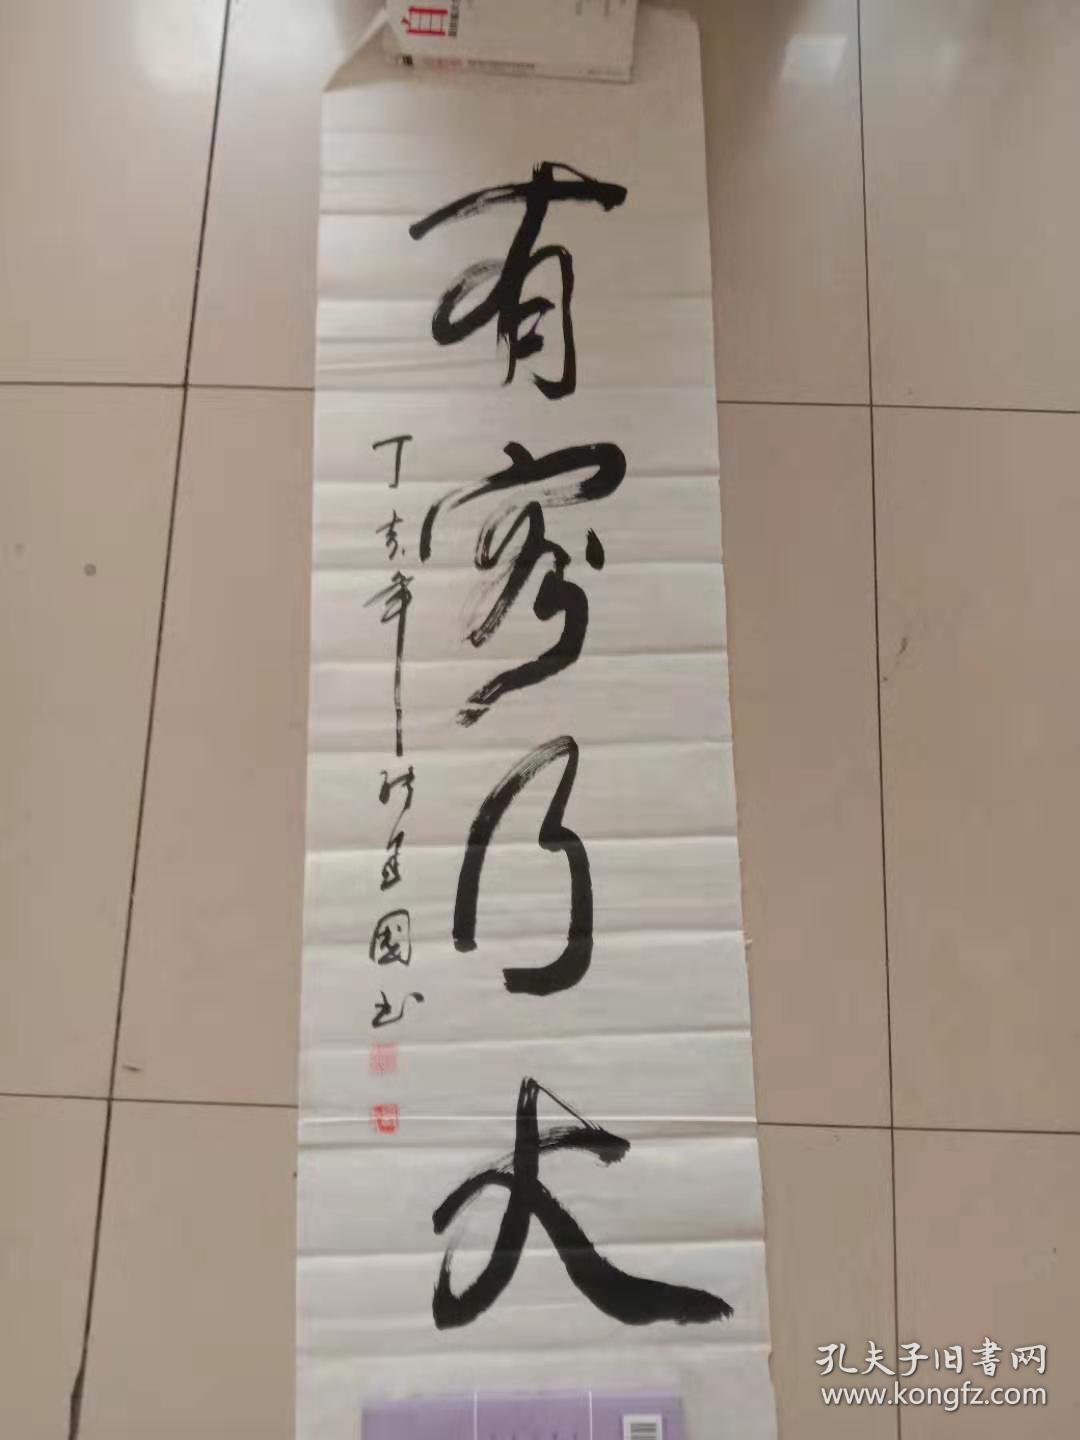 有容乃大
丁亥年張建國书
孔夫子旧書网
www.kongfz.com